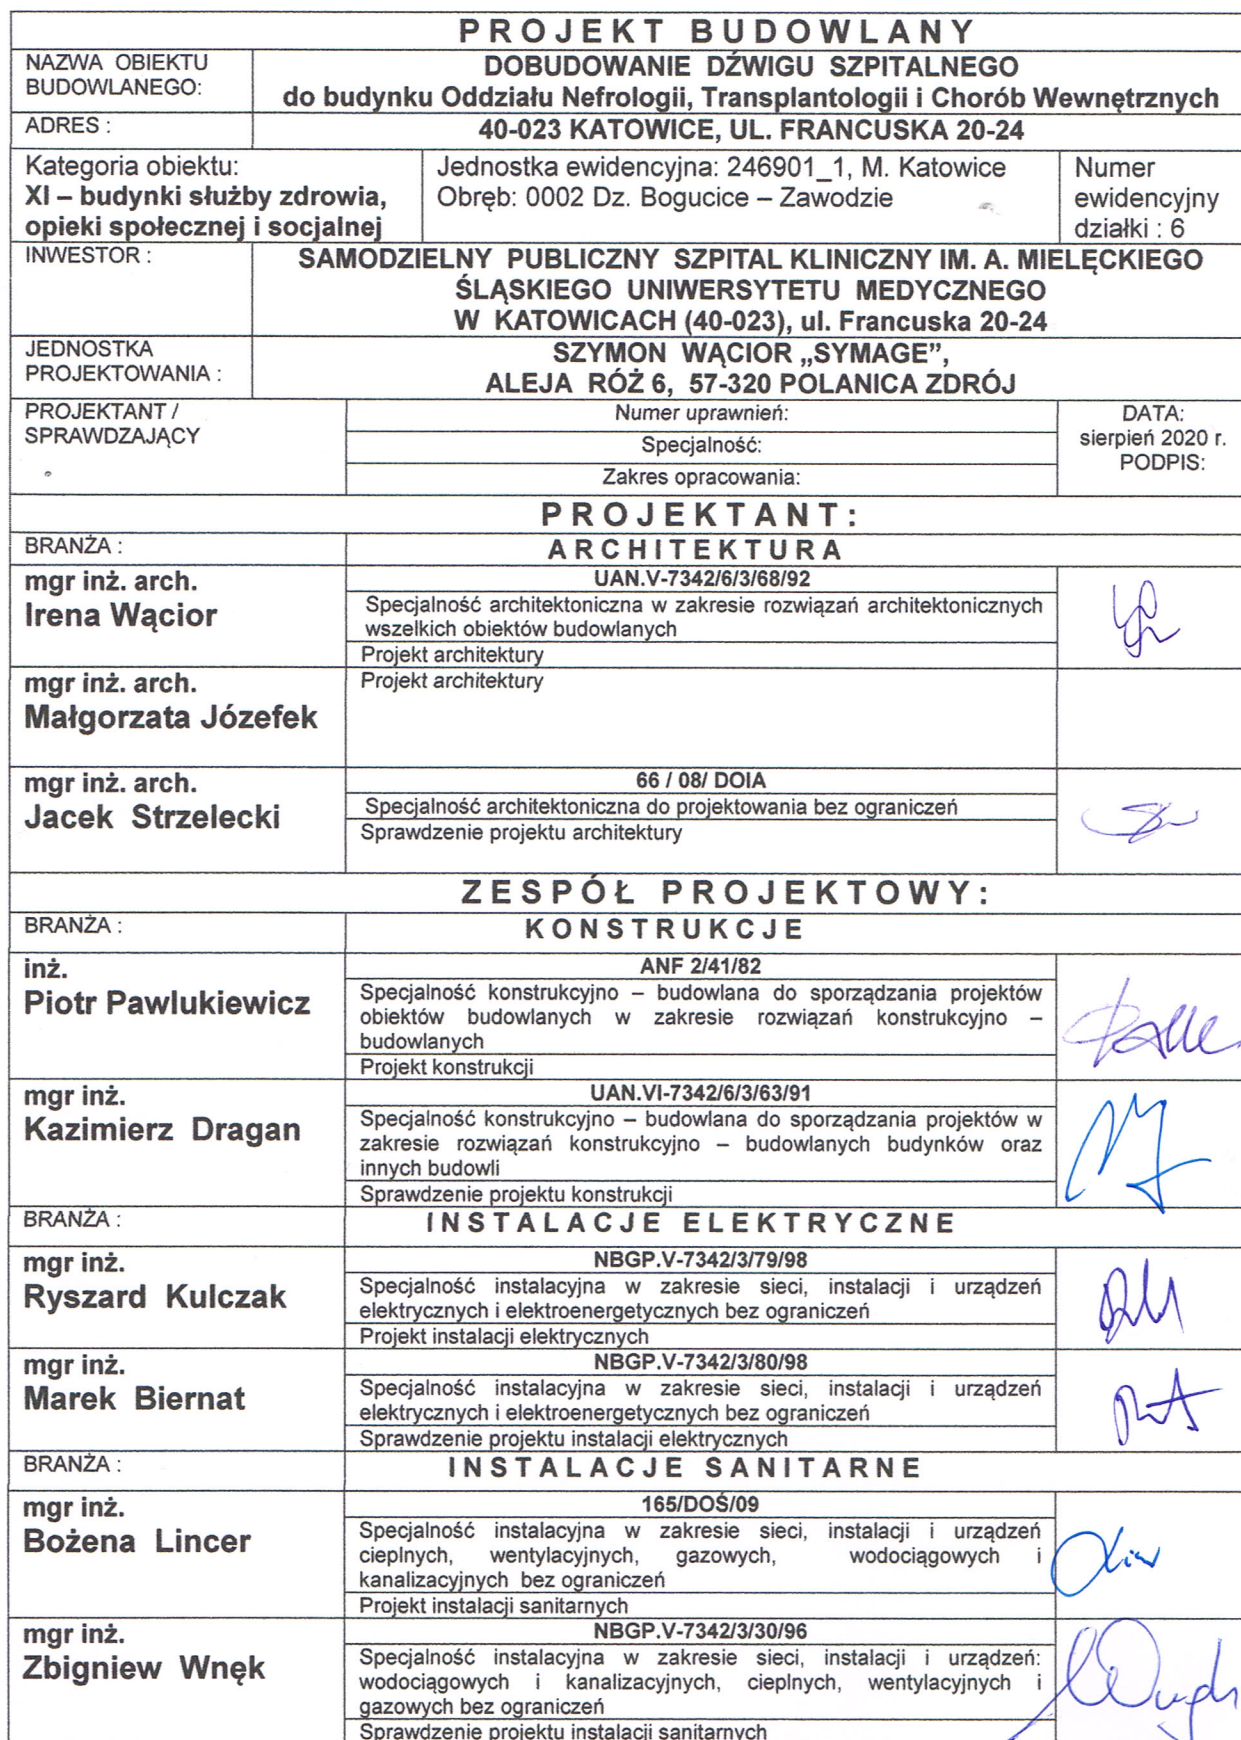 PROJEKT BUDOWLANY
NAZWA OBIEKTU
BUDOWLANEGO:
DOBUDOWANIE DŹWIGU SZPITALNEGO
do budynku Oddziału Nefrologii, Transplantologii i Chorób Wewnętrznych
ADRES :
40-023 KATOWICE, UL. FRANCUSKA 20-24
Kategoria obiektu:
XI – budynki służby zdrowia,
opieki społecznej i socjalnej
Jednostka ewidencyjna: 246901_1, M. Katowice
Obręb: 0002 Dz. Bogucice – Zawodzie
Numer
ewidencyjny
działki : 6
INWESTOR :
SAMODZIELNY PUBLICZNY SZPITAL KLINICZNY IM. A. MIELĘCKIEGO
ŚLĄSKIEGO UNIWERSYTETU MEDYCZNEGO
W KATOWICACH (40-023), ul. Francuska 20-24
JEDNOSTKA
PROJEKTOWANIA :
SZYMON WĄCIOR „SYMAGE”,
ALEJA RÓŻ 6, 57-320 POLANICA ZDRÓJ
PROJEKTANT /
SPRAWDZAJĄCY
Numer uprawnień:
Specjalność:
Zakres opracowania:
DATA:
sierpień 2020 r.
PODPIS:
PROJEKTANT:
BRANŻA :
ARCHITEKTURA
mgr inż. arch.
Irena Wącior
UAN.V-7342/6/3/68/92
Specjalność architektoniczna w zakresie rozwiązań architektonicznych
wszelkich obiektów budowlanych
Projekt architektury
mgr inż. arch.
Małgorzata Józefek
Projekt architektury
mgr inż. arch.
Jacek Strzelecki
66 / 08/ DOIA
Specjalność architektoniczna do projektowania bez ograniczeń
Sprawdzenie projektu architektury
ZESPÓŁ PROJEKTOWY:
BRANŻA :
KONSTRUKCJE
inż.
Piotr Pawlukiewicz
ANF 2/41/82
Specjalność konstrukcyjno – budowlana do sporządzania projektów
obiektów budowlanych w zakresie rozwiązań konstrukcyjno –
budowlanych
Projekt konstrukcji
mgr inż.
Kazimierz Dragan
UAN.VI-7342/6/3/63/91
Specjalność konstrukcyjno – budowlana do sporządzania projektów w
zakresie rozwiązań konstrukcyjno – budowlanych budynków oraz
innych budowli
Sprawdzenie projektu konstrukcji
BRANŻA :
INSTALACJE ELEKTRYCZNE
mgr inż.
Ryszard Kulczak
NBGP.V-7342/3/79/98
Specjalność instalacyjna w zakresie sieci, instalacji i urządzeń
elektrycznych i elektroenergetycznych bez ograniczeń
Projekt instalacji elektrycznych
mgr inż.
Marek Biernat
NBGP.V-7342/3/80/98
Specjalność instalacyjna w zakresie sieci, instalacji i urządzeń
elektrycznych i elektroenergetycznych bez ograniczeń
Sprawdzenie projektu instalacji elektrycznych
BRANŻA :
INSTALACJE SANITARNE
mgr inż.
Bożena Lincer
165/DOŚ/09
Specjalność instalacyjna w zakresie sieci, instalacji i urządzeń
cieplnych, wentylacyjnych, gazowych, wodociągowych i
kanalizacyjnych bez ograniczeń
Projekt instalacji sanitarnych
mgr inż.
Zbigniew Wnęk
NBGP.V-7342/3/30/96
Specjalność instalacyjna w zakresie sieci, instalacji i urządzeń:
wodociągowych i kanalizacyjnych, cieplnych, wentylacyjnych i
gazowych bez ograniczeń
Sprawdzenie projektu instalacji sanitarnych